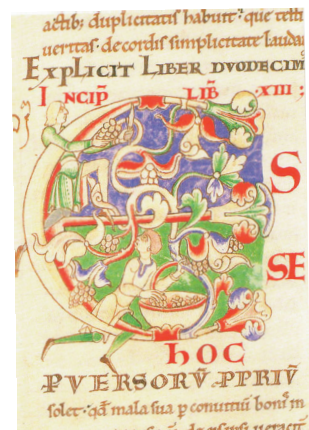 actib; duplicitatis habuit· que testi
ueritas· de cordis simplicitate lauda
EXPLICIT LIBER DVODECIM
INCIP̄ LIB̄ ·XIII;
E
S
SE
hOC
PVERSORV̄ PPRIV̄
solet· qd̄ mala sua p conuitiū bonis in